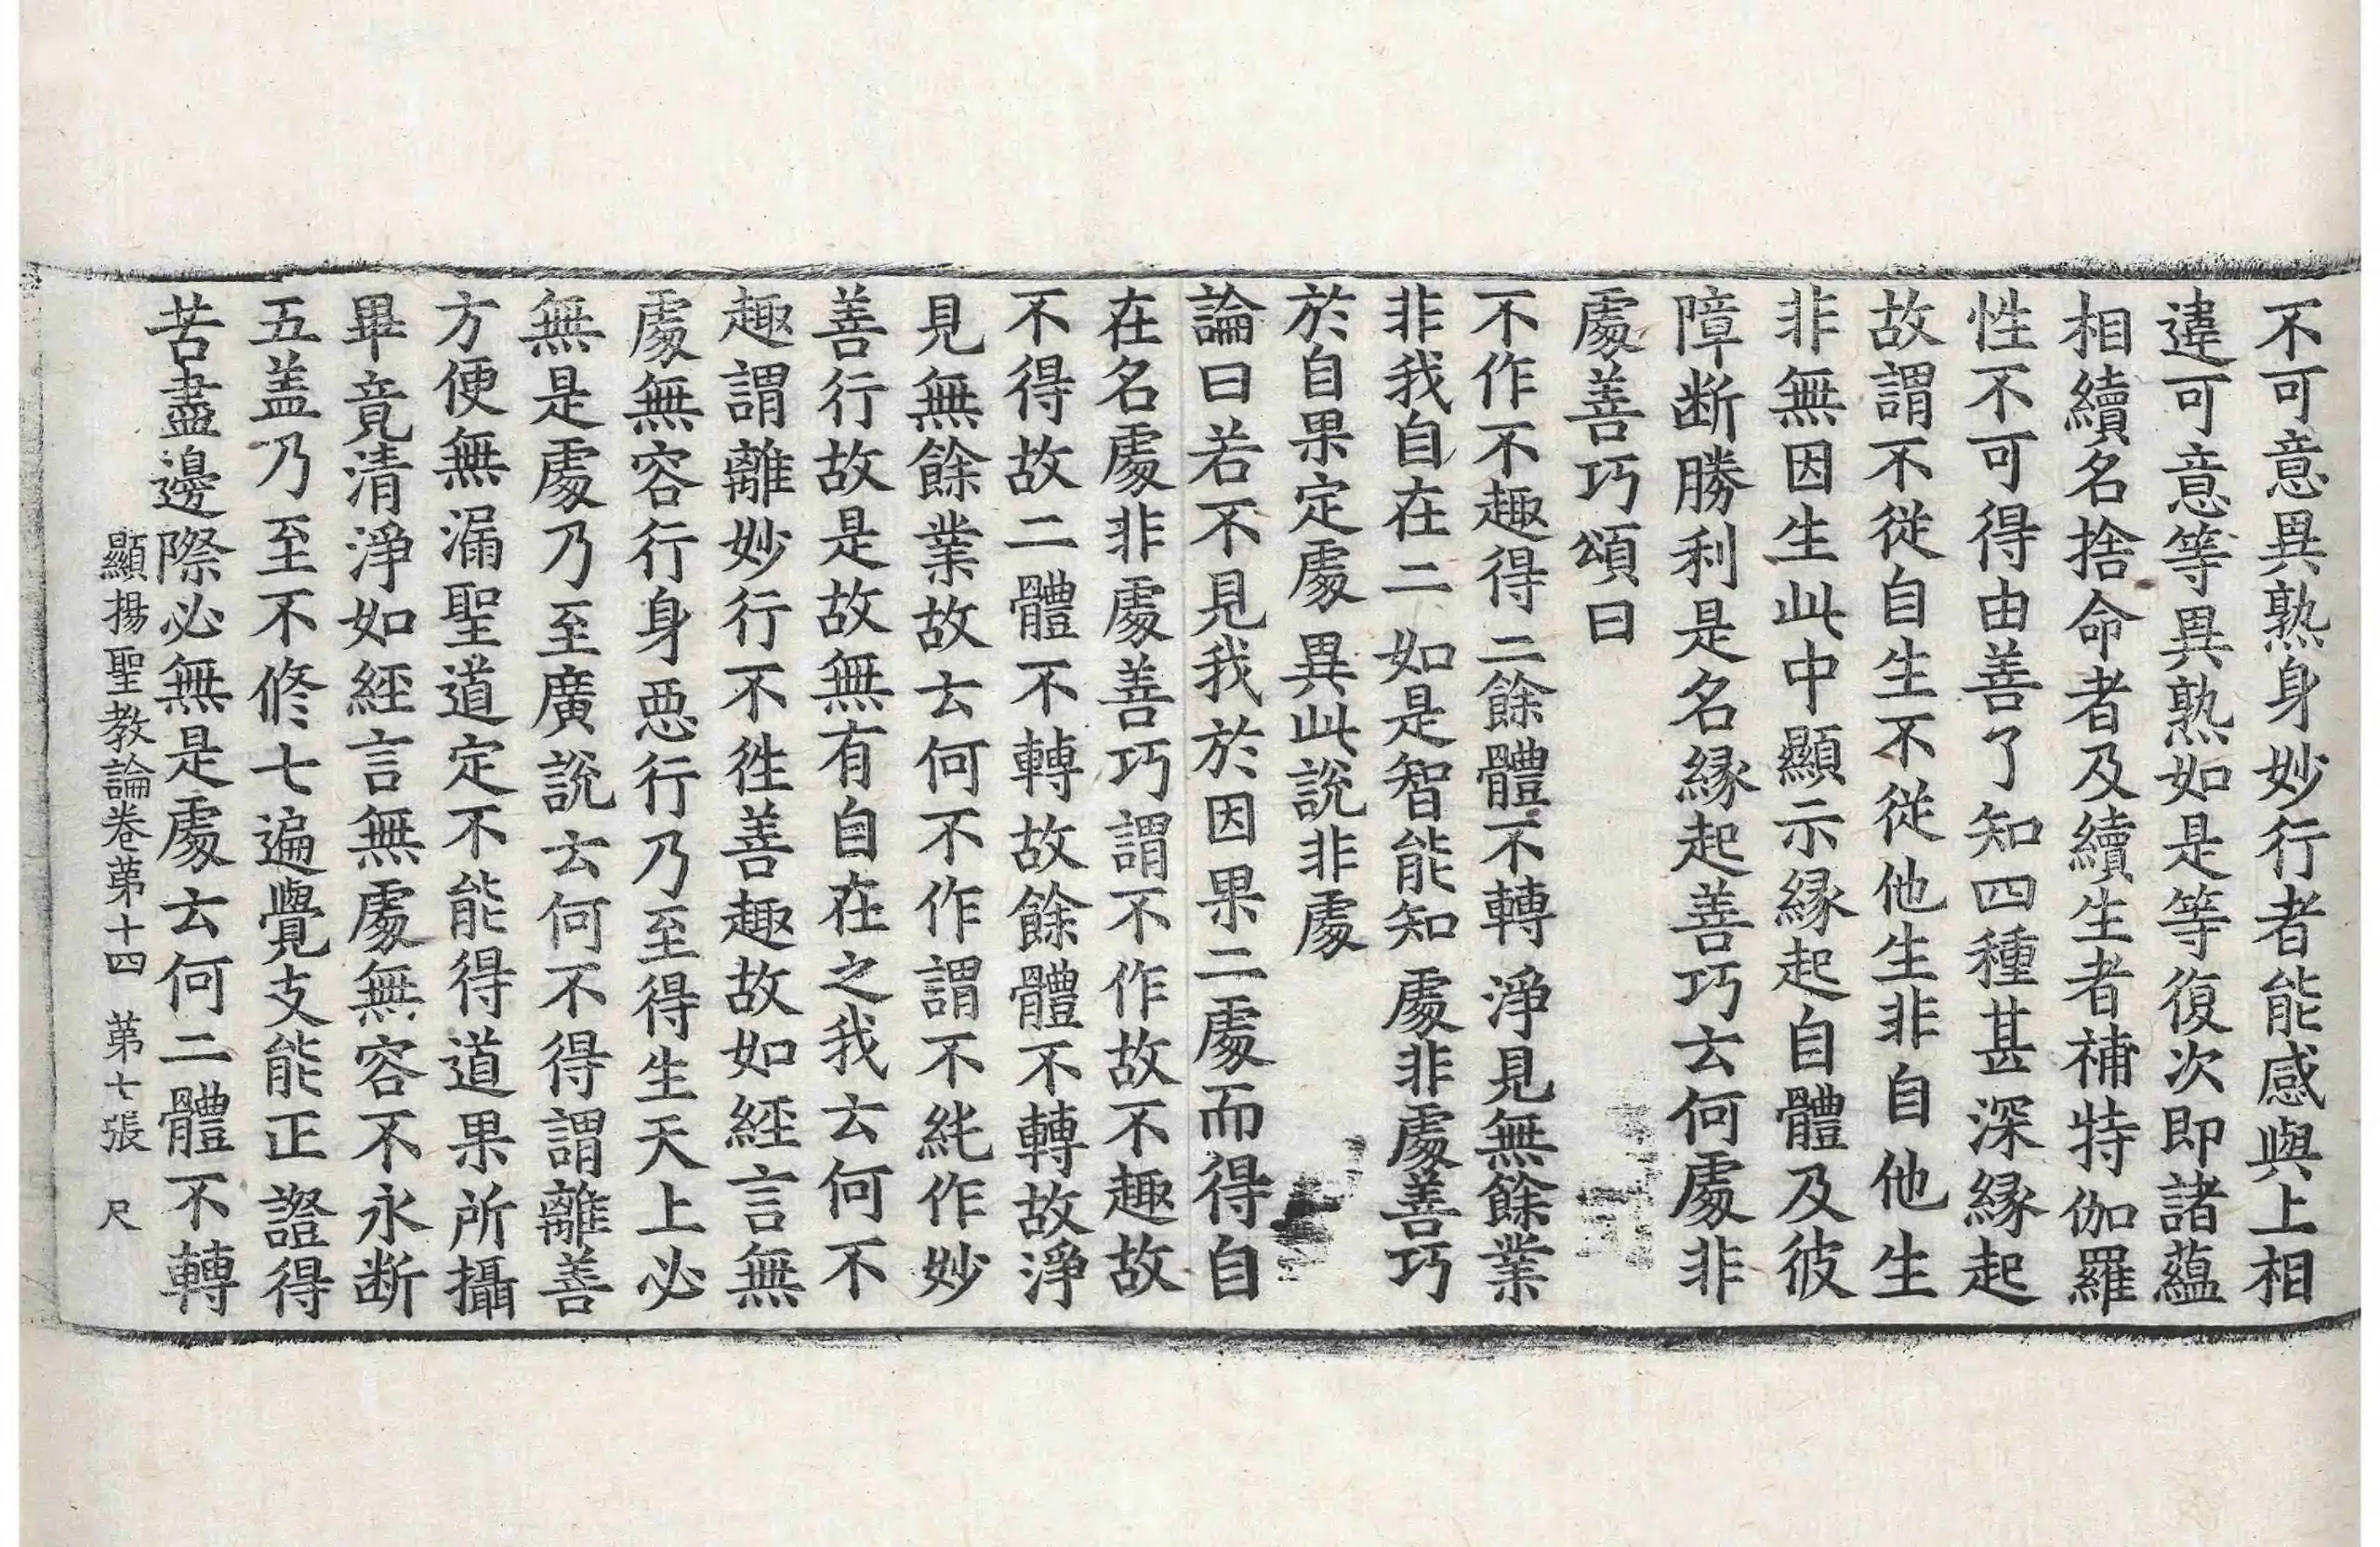 不可意異熟身妙行者能感與上相
違可意等異熟如是等復次即諸蘊
相續名捨命者及續生者補特伽羅
性不可得由善了知四種甚深縁起
故謂不從自生不從他生非自他生
非無因生此中顯示縁起自體及彼
障断勝利是名縁起善巧去何處非
處善巧頌曰
不作不趣得二餘體不轉 淨見無餘業
非我自在二 如是智能知 處非處善巧
於自果定處 異此說非處
論曰若不見我於因果二處而得自
在名處非處善巧謂不作故不趣故
不得故二體不轉故餘體不轉故淨
見無餘業故去何不作謂不純作妙
善行故是故無有自在之我去何不
趣謂離妙行不徃善趣故如經言無
處無容行身惡行乃至得生天上必
無是處乃至廣說去何不得謂離善
方便無漏聖道定不能得道果所攝
畢竟清淨如經言無處無容不永断
五盖乃至不修七遍覺支能正證得
苦盡邊際必無是處去何二體不轉
顯揚聖教論卷苐十四 苐七張 尺